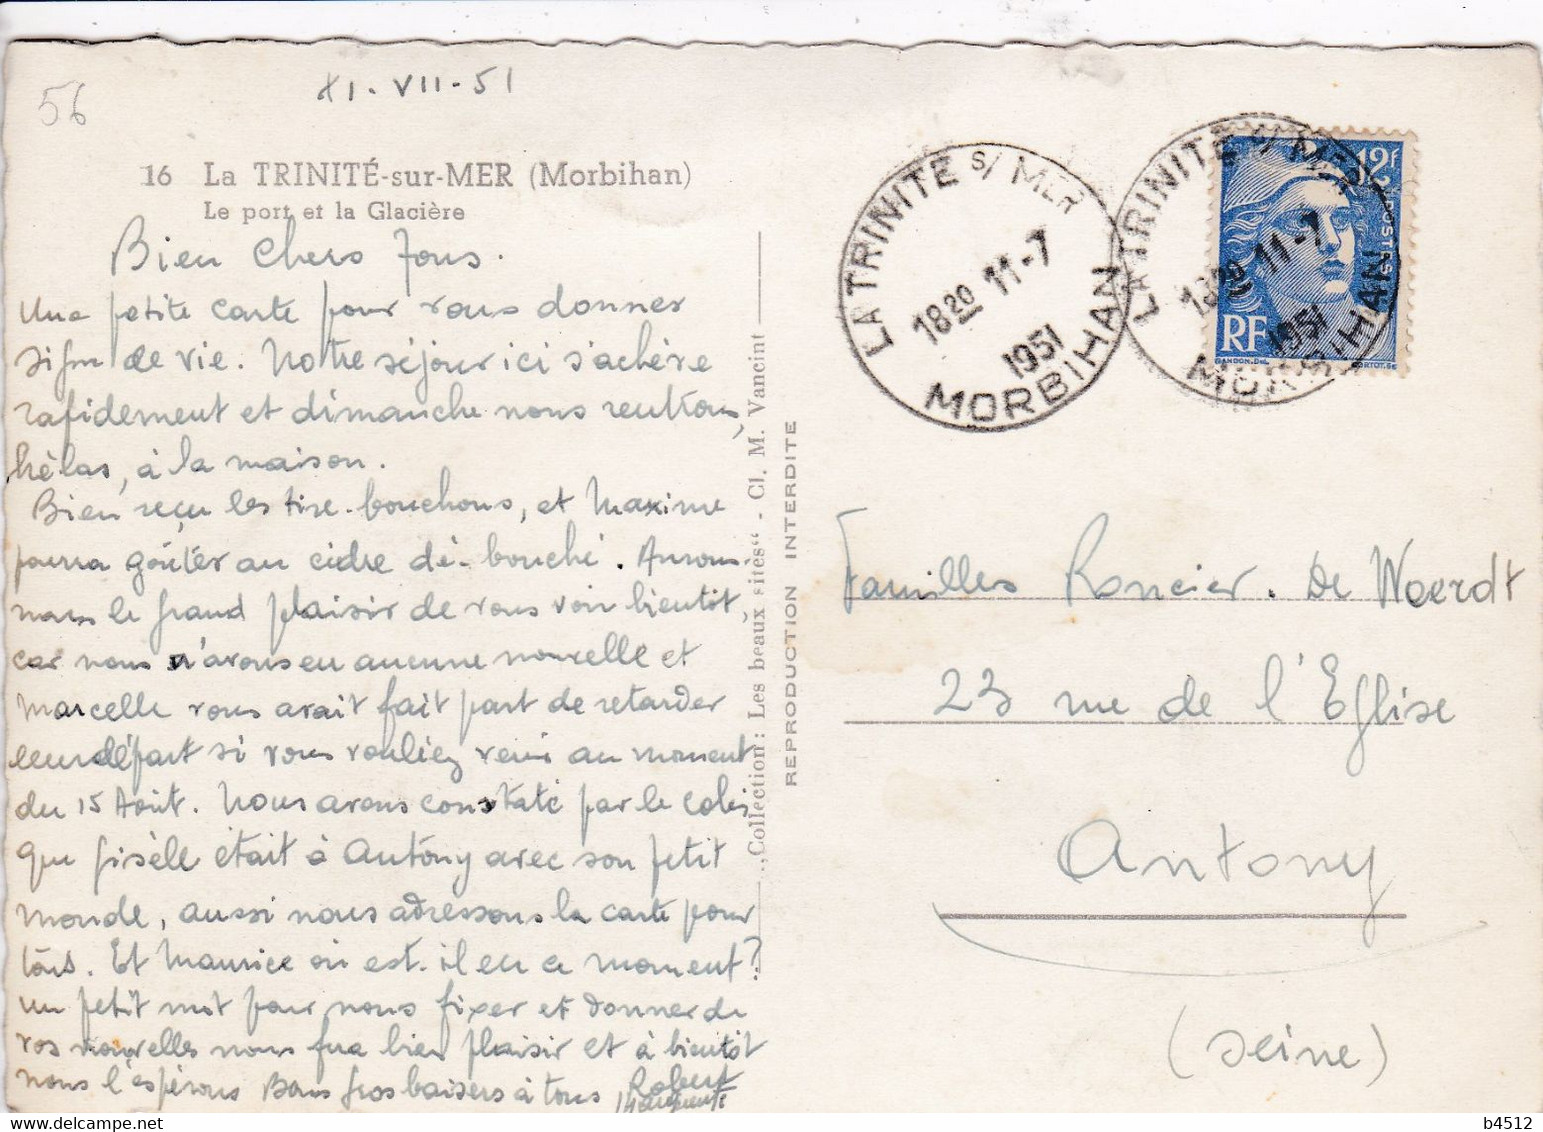 56
XI-VII-51
16 La TRINITÉ-sur-MER (Morbihan)
Le port et la Glacière
Bien Chers Tous.
Une petite carte pour vous donner
signe de vie. Notre séjour ici s'achève
rapidement et dimanche nous rentrons,
hélas, à la maison.
Bien reçu les tire-bouchons, et Maxime
pourra goûter au cidre dé-bouché. Aurons-
nous le grand plaisir de vous voir bientôt
car nous n'avons eu aucune nouvelle et
Marcelle vous avait fait part de retarder
leur départ si vous vouliez venir au moment
du 15 Août. Nous avons constaté par le colis
que Gisèle était à Antony avec son petit
monde, aussi nous adressons la carte pour
tous. Et Maurice où est-il en ce moment?
un petit mot pour nous fixer et donner de
vos nouvelles nous fera bien plaisir et à bientôt
nous l'espérons Bons gros baisers à tous Robert
Marguerite
„Collection: Les beaux sites“ - Cl. M. Vancint
REPRODUCTION INTERDITE
LA TRINITE S/ MER
18 20 11-7
1951
MORBIHAN
LA TRINITE S/ MER
18 20 11-7
1951
MORBIHAN
12f
POSTES
RF
GANDON.DEL.
CORTOT.SC
Familles Roncier. De Woerdt
23 rue de l'Eglise
Antony
(Seine)
b4512